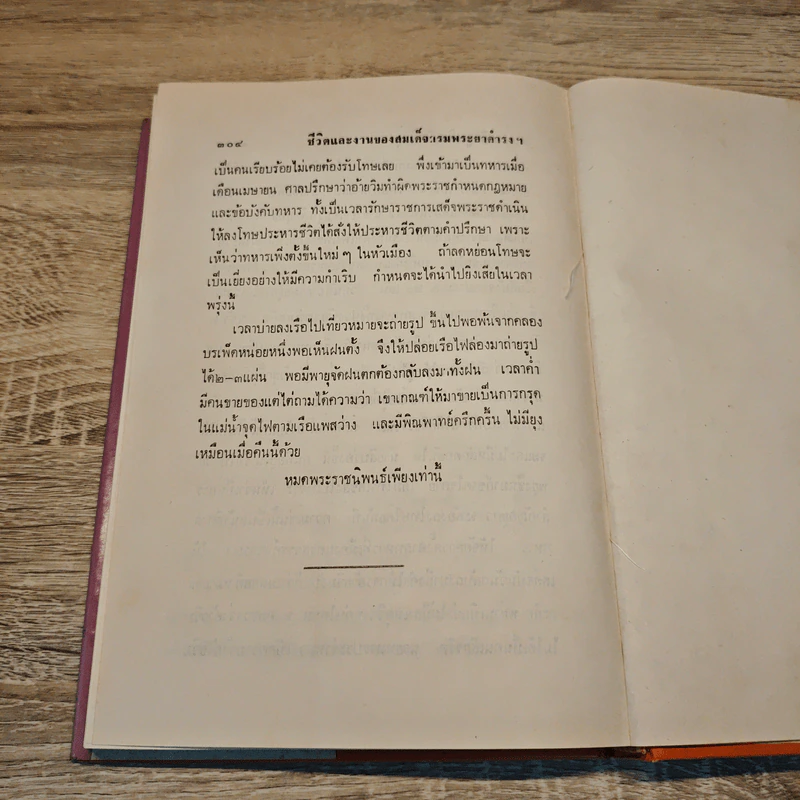 ๓๐๔ ชีวิตและงานของสมเด็จกรมพระยาดำรงฯ
เป็นคนเรียบร้อยไม่เคยต้องรับโทษเลย พึ่งเข้ามาเป็นทหารเมื่อ
เดือนเมษายน ศาลปรึกษาว่าอ้ายวิมทำผิดพระราชกำหนดกฎหมาย
และข้อบังคับทหาร ทั้งเป็นเวลารักษาราชการเสด็จพระราชดำเนิน
ให้ลงโทษประหารชีวิตได้สั่งให้ประหารชีวิตตามคำปรึกษา เพราะ
เห็นว่าทหารเพิ่งตั้งขึ้นใหม่ ๆ ในหัวเมือง ถ้าลดหย่อนโทษจะ
เป็นเยี่ยงอย่างให้มีความกำเริบ กำหนดจะได้นำไปยิงเสียในเวลา
พรุ่งนี้
เวลาบ่ายลงเรือไปเที่ยวหมายจะถ่ายรูป ขึ้นไปพอพ้นจากคลอง
บรเพ็ดหน่อยหนึ่งพอเห็นฝนตั้ง จึงให้ปล่อยเรือไฟล่องมาถ่ายรูป
ได้๒-๓แผ่น พอมีพายุจัดฝนตกต้องกลับลงมาทั้งฝน เวลาค่ำ
มีคนขายของแต่ไต่ถามได้ความว่า เขาเกณฑ์ให้มาขายเป็นการกรุด
ในแม่น้ำจุดไฟตามเรือแพสว่าง และมีพิณพาทย์ครึกครื้น ไม่มียุง
เหมือนเมื่อคืนนี้ด้วย
หมดพระราชนิพนธ์เพียงเท่านี้